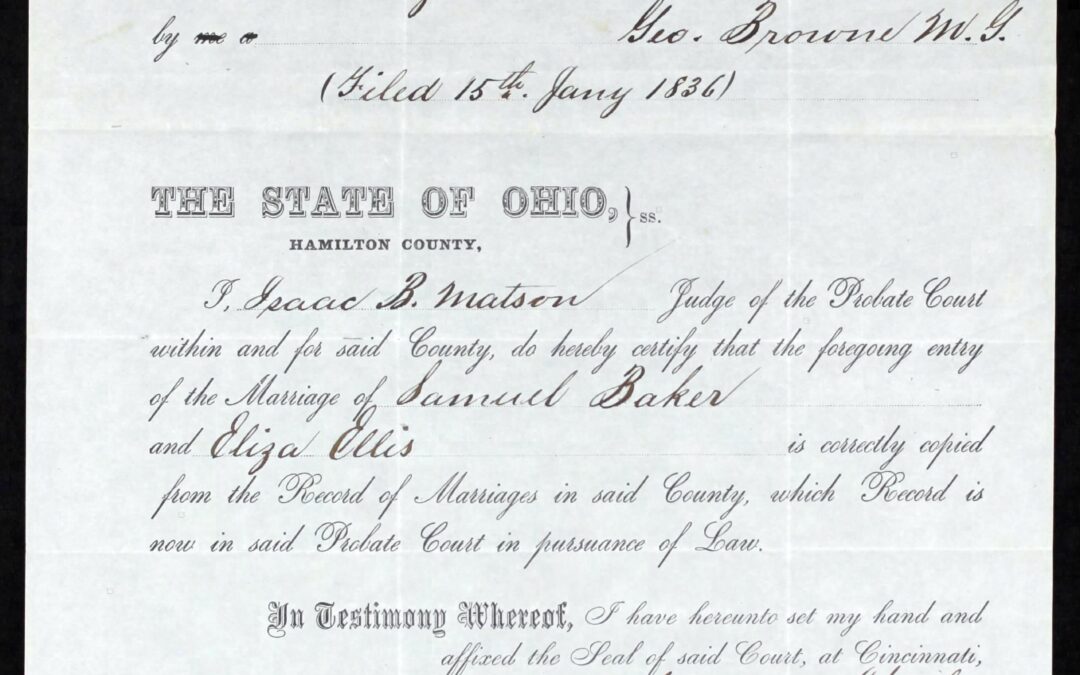 by me a Geo. Browne M.G.
(Filed 15th. Jany 1836)
THE STATE OF OHIO, } ss.
HAMILTON COUNTY,
I, Isaac B. Matson Judge of the Probate Court
within and for said County, do hereby certify that the foregoing entry
of the Marriage of Samuel Baker
and Eliza Ellis is correctly copied
from the Record of Marriages in said County, which Record is
now in said Probate Court in pursuance of Law.
In Testimony Whereof, I have hereunto set my hand and
affixed the Seal of said Court, at Cincinnati,